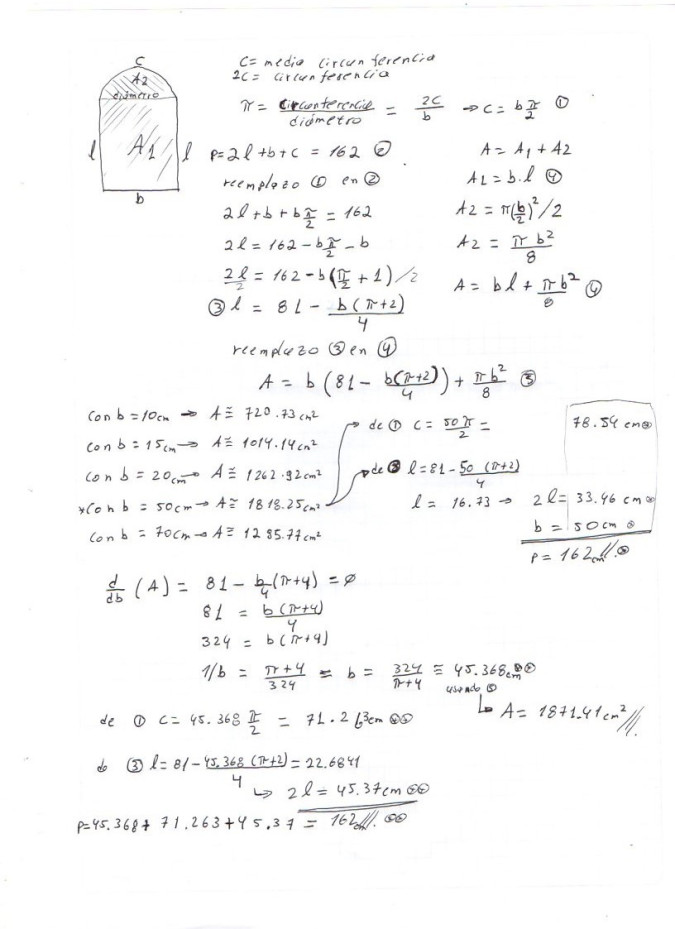 C
A2
diámetro
l A1 l
b
C = media circunferencia
2C = circunferencia
π = circunferencia/diámetro = 2C/b ⇒ C = b π/2 ①
P = 2l + b + c = 162 ②
reemplazo ① en ②
2l + b + b π/2 = 162
2l = 162 - b π/2 - b
2l/2 = 162 - b(π/2 + 1) /2
③ l = 81 - b(π+2)/4
A = A1 + A2
A1 = b.l ④
A2 = π(b/2)²/2
A2 = π b²/8
A = bl + πb²/8 ④
reemplazo ③ en ④
A = b (81 - b(π+2)/4) + πb²/8 ⑤
Con b = 10cm → A ≅ 720.73cm²
Con b = 15cm → A ≅ 1014.14cm²
Con b = 20cm → A ≅ 1262.92cm²
*Con b = 50cm → A ≅ 1818.25cm²
Con b = 70cm → A ≅ 1285.77cm²
de ① C = 50π/2 = 78.54 cm
de ③ l = 81 - 50 (π+2)/4
l = 16.73 → 2l = 33.46 cm
b = 50 cm
P = 162cm
d/db (A) = 81 - b/4(π+4) = ø
81 = b(π+4)/4
324 = b(π+4)
1/b = π+4/324 = b = 324/π+4 ≅ 45.368cm
usando ⑤
A = 1871.41cm²
de ① C = 45.368 π/2 = 71.263cm
de ③ l = 81 - 45.368 (π+2)/4 = 22.6841
2l = 45.37cm
P = 45.368 + 71.263 + 45.37 = 162cm